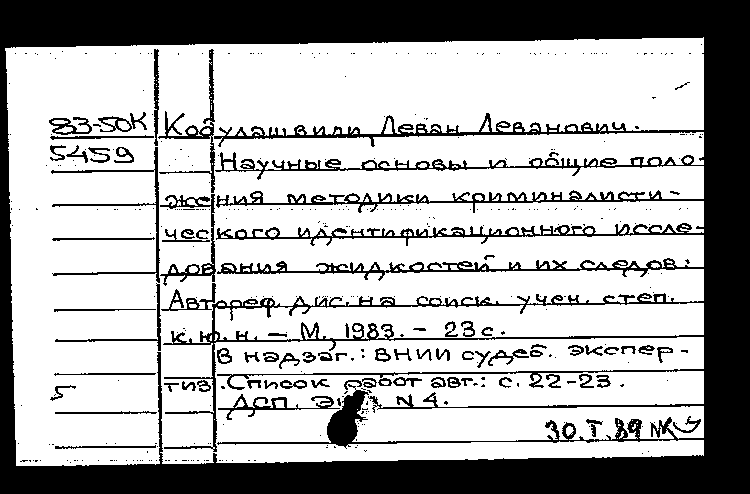 83-50К Кобулашвили, Леван Леванович.
5459 Научные основы и общие поло-
жения методики криминалисти-
ческого идентификационного иссле-
дования жидкостей и их следов:
Автореф. дис. на соиск. учен. степ.
к. ю. н. – М., 1983. – 23 с.
В надзаг.: ВНИИ судеб. экспер-
5 тиз. Список работ авт.: с. 22-23.
ДСП. N 4.
30.I.89